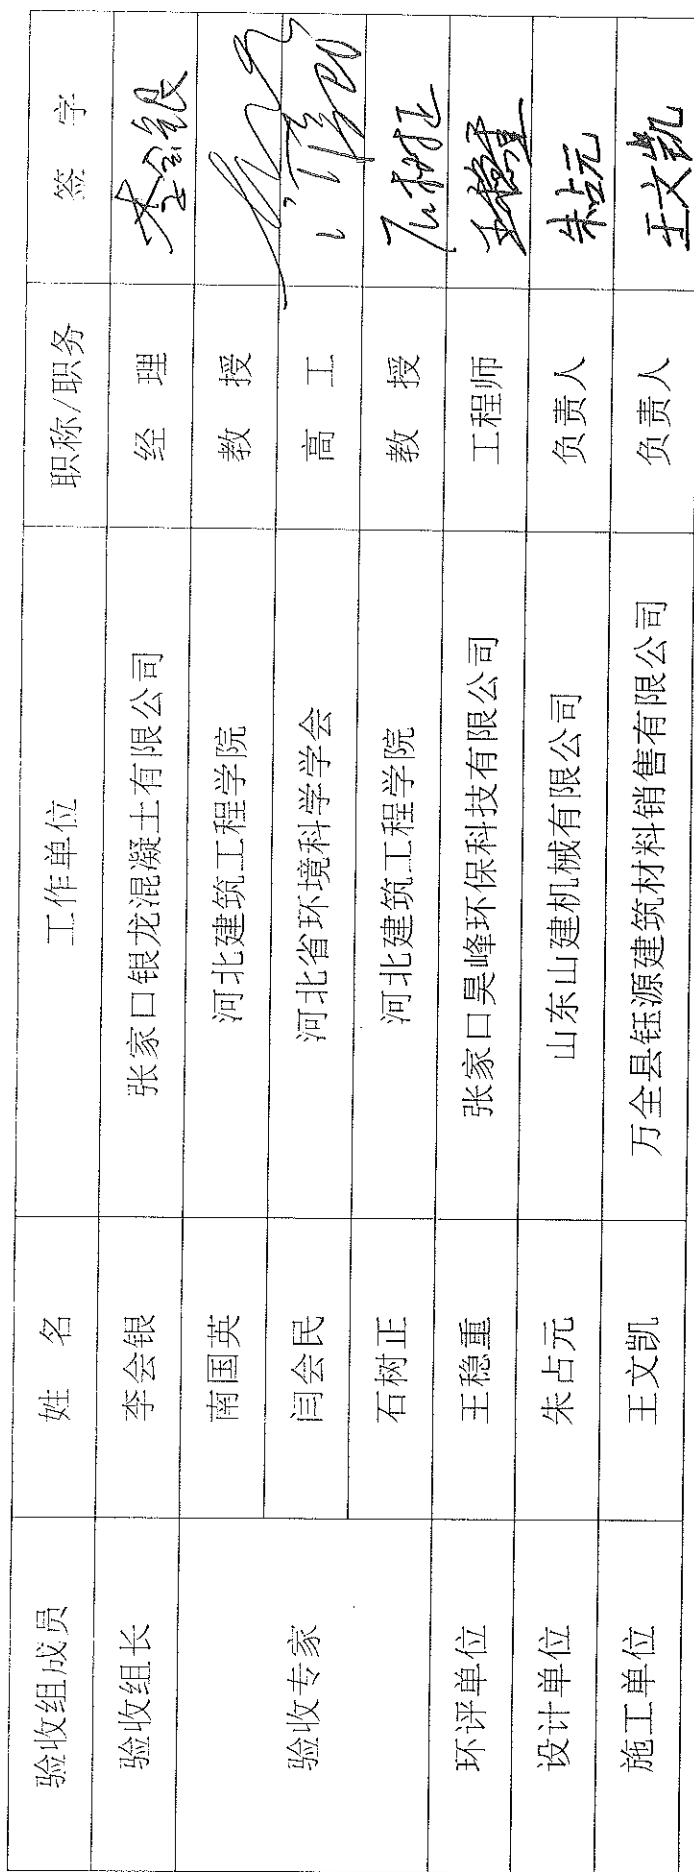 验收组成员 姓 名 工作单位 职称/职务 签 字
验收组长 李会银 张家口银龙混凝土有限公司 经 理 李会银
验收专家 南国英 河北建筑工程学院 教 授
闫会民 河北省环境科学学会 高 工
石树正 河北建筑工程学院 教 授 石树正
环评单位 王稳重 张家口昊峰环保科技有限公司 工程师 王稳重
设计单位 朱占元 山东山建机械有限公司 负责人 朱占元
施工单位 王文凯 万全县钰源建筑材料销售有限公司 负责人 王文凯